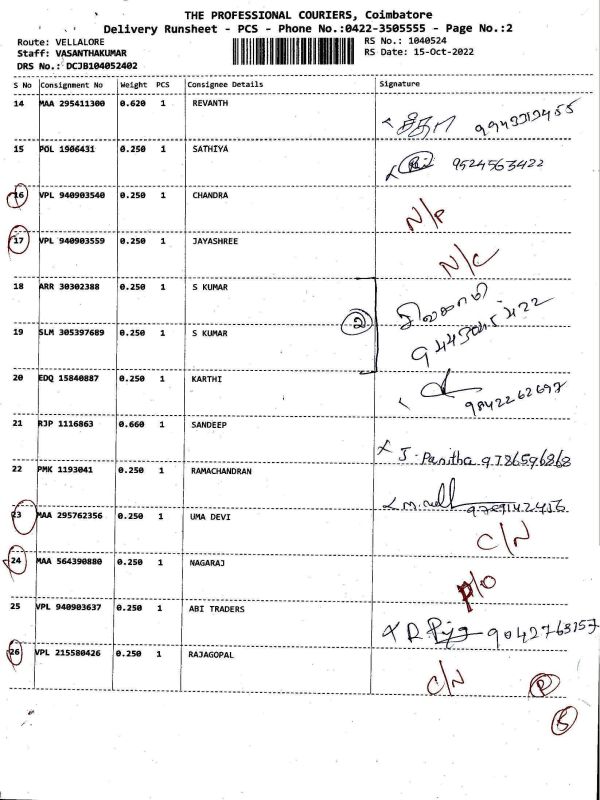 THE PROFESSIONAL COURIERS, Coimbatore
Delivery Runsheet - PCS - Phone No.:0422-3505555 - Page No.:2
Route: VELLALORE RS No.: 1040524
Staff: VASANTHAKUMAR RS Date: 15-Oct-2022
DRS No.: DCJB104052402
S No Consignment No Weight PCS Consignee Details Signature
14 MAA 295411300 0.620 1 REVANTH
15 POL 1906431 0.250 1 SATHIYA 9524563422
16 VPL 940903540 0.250 1 CHANDRA N/P
17 VPL 940903559 0.250 1 JAYASHREE N/C
18 ARR 30302388 0.250 1 S KUMAR
2
19 SLM 305397689 0.250 1 S KUMAR
20 EDQ 15840887 0.250 1 KARTHI 9842262697
21 RJP 1116863 0.660 1 SANDEEP J. Panitha 9786596868
22 PMK 1193041 0.250 1 RAMACHANDRAN
23 MAA 295762356 0.250 1 UMA DEVI C/N
24 MAA 564390880 0.250 1 NAGARAJ P/O
25 VPL 940903637 0.250 1 ABI TRADERS 9042763157
26 VPL 215580426 0.250 1 RAJAGOPAL C/N